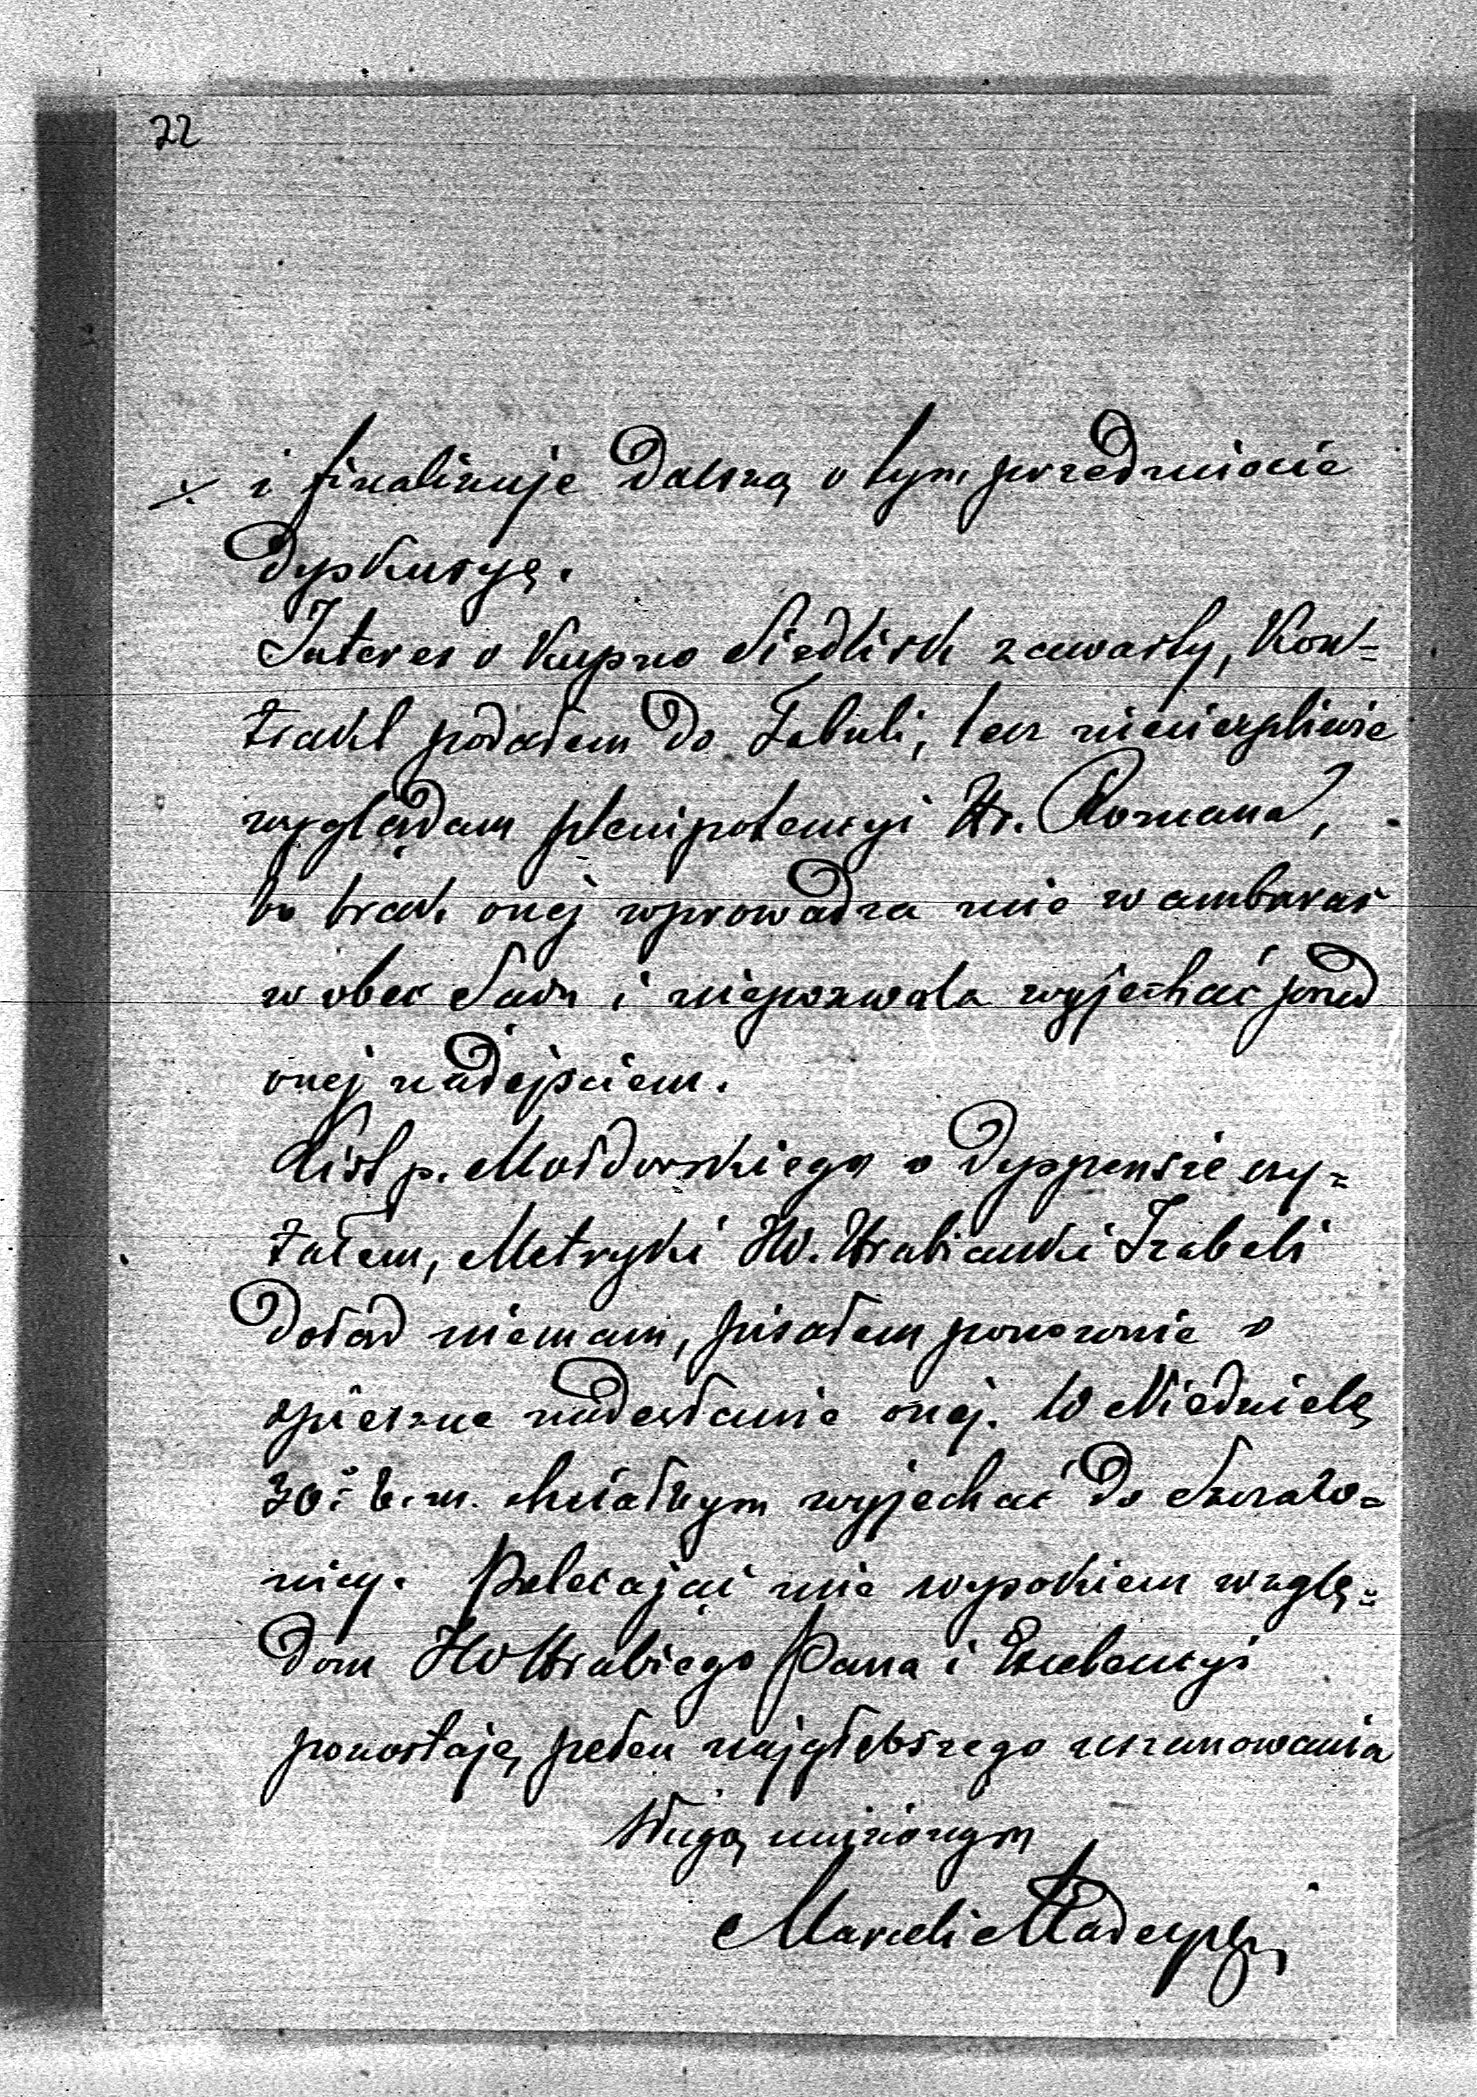 22
i finalizuje dalszą o tym przedmiocie
dyskusyę.
Interes o kupno Siedlisk zawarty, Kon=
trakt podałem do Tabuli, lecz niecierpliwie
wyglądam plenipotencyi Hr. Romana,
bo brak onej wprowadza mie w ambaras
w obec Sądu i niepozwala wyjechać przed
onej nadejściem.
List p. Mołdorskiego o dyspensie czy=
tałem, Metryki JW. Hrabianki Izabeli
dotąd niemam, pisałem ponownie o
spieszne nadesłanie onej. W Niedzielę
30: b. m. chciałbym wyjechać do Szczaw=
nicy. Polecając mie wysokiem wzglę=
dom JW Hrabiego Pana i Excelencyi
pozostaję pełen najgłębszego uszanowania
sługą uniżonym
Marceli Madeyski